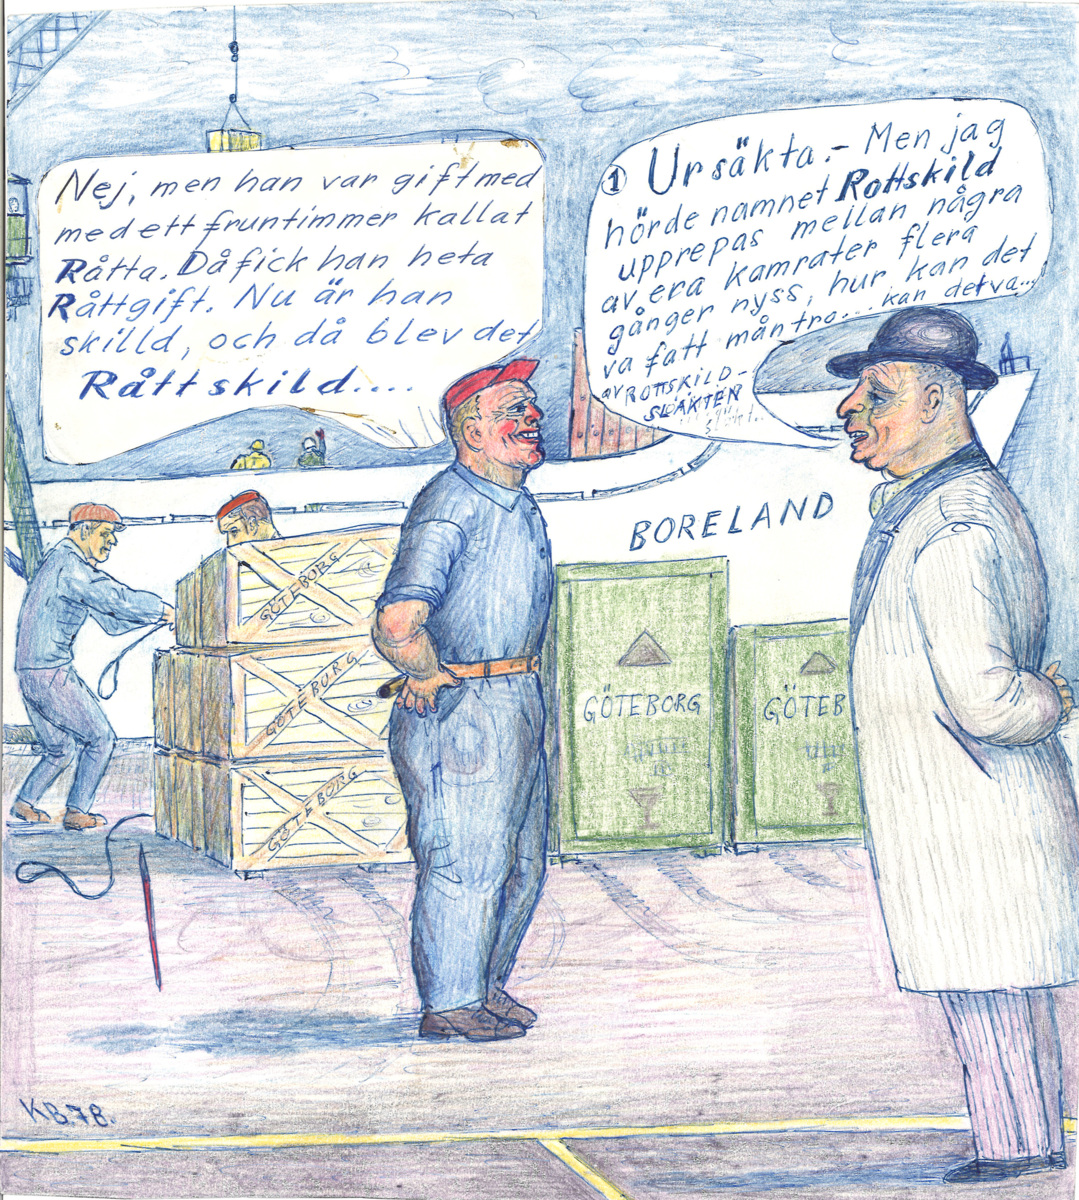 ① Ursäkta.- Men jag
hörde namnet Rottskild
upprepas mellan några
av era kamrater flera
gånger nyss, hur kan det
va fatt mån tro.... kan det va...
av ROTTSKILD-
SLÄKTEN
Nej, men han var gift med
med ett fruntimmer kallat
Råtta. Då fick han heta
Råttgift. Nu är han
skilld, och då blev det
Råttskild....
BORELAND
GÖTEBORG
GÖTEBORG
GÖTEBORG
GÖTEBORG
GÖTEB
KB.78.